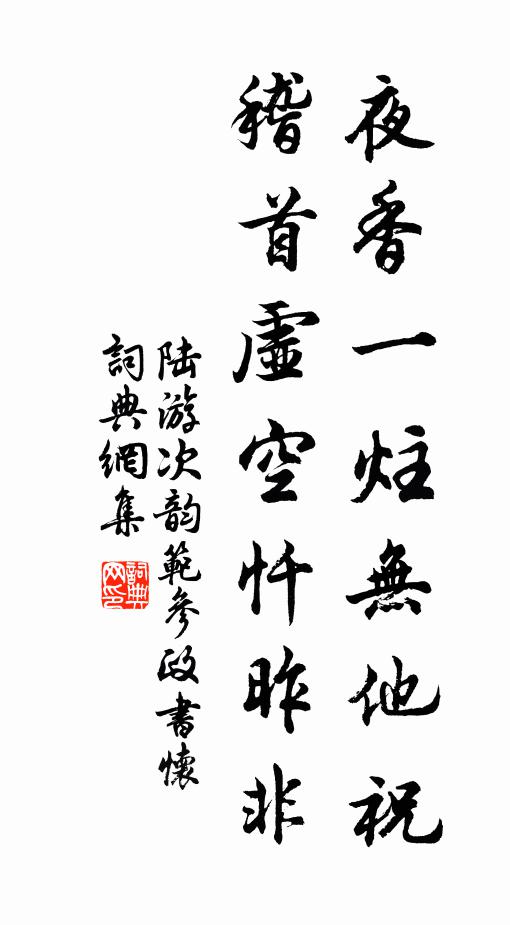 夜香一炷無他祝
稽首虛空忏昨非
陆游次韵範參政書懷
詞典網集
詞典网印